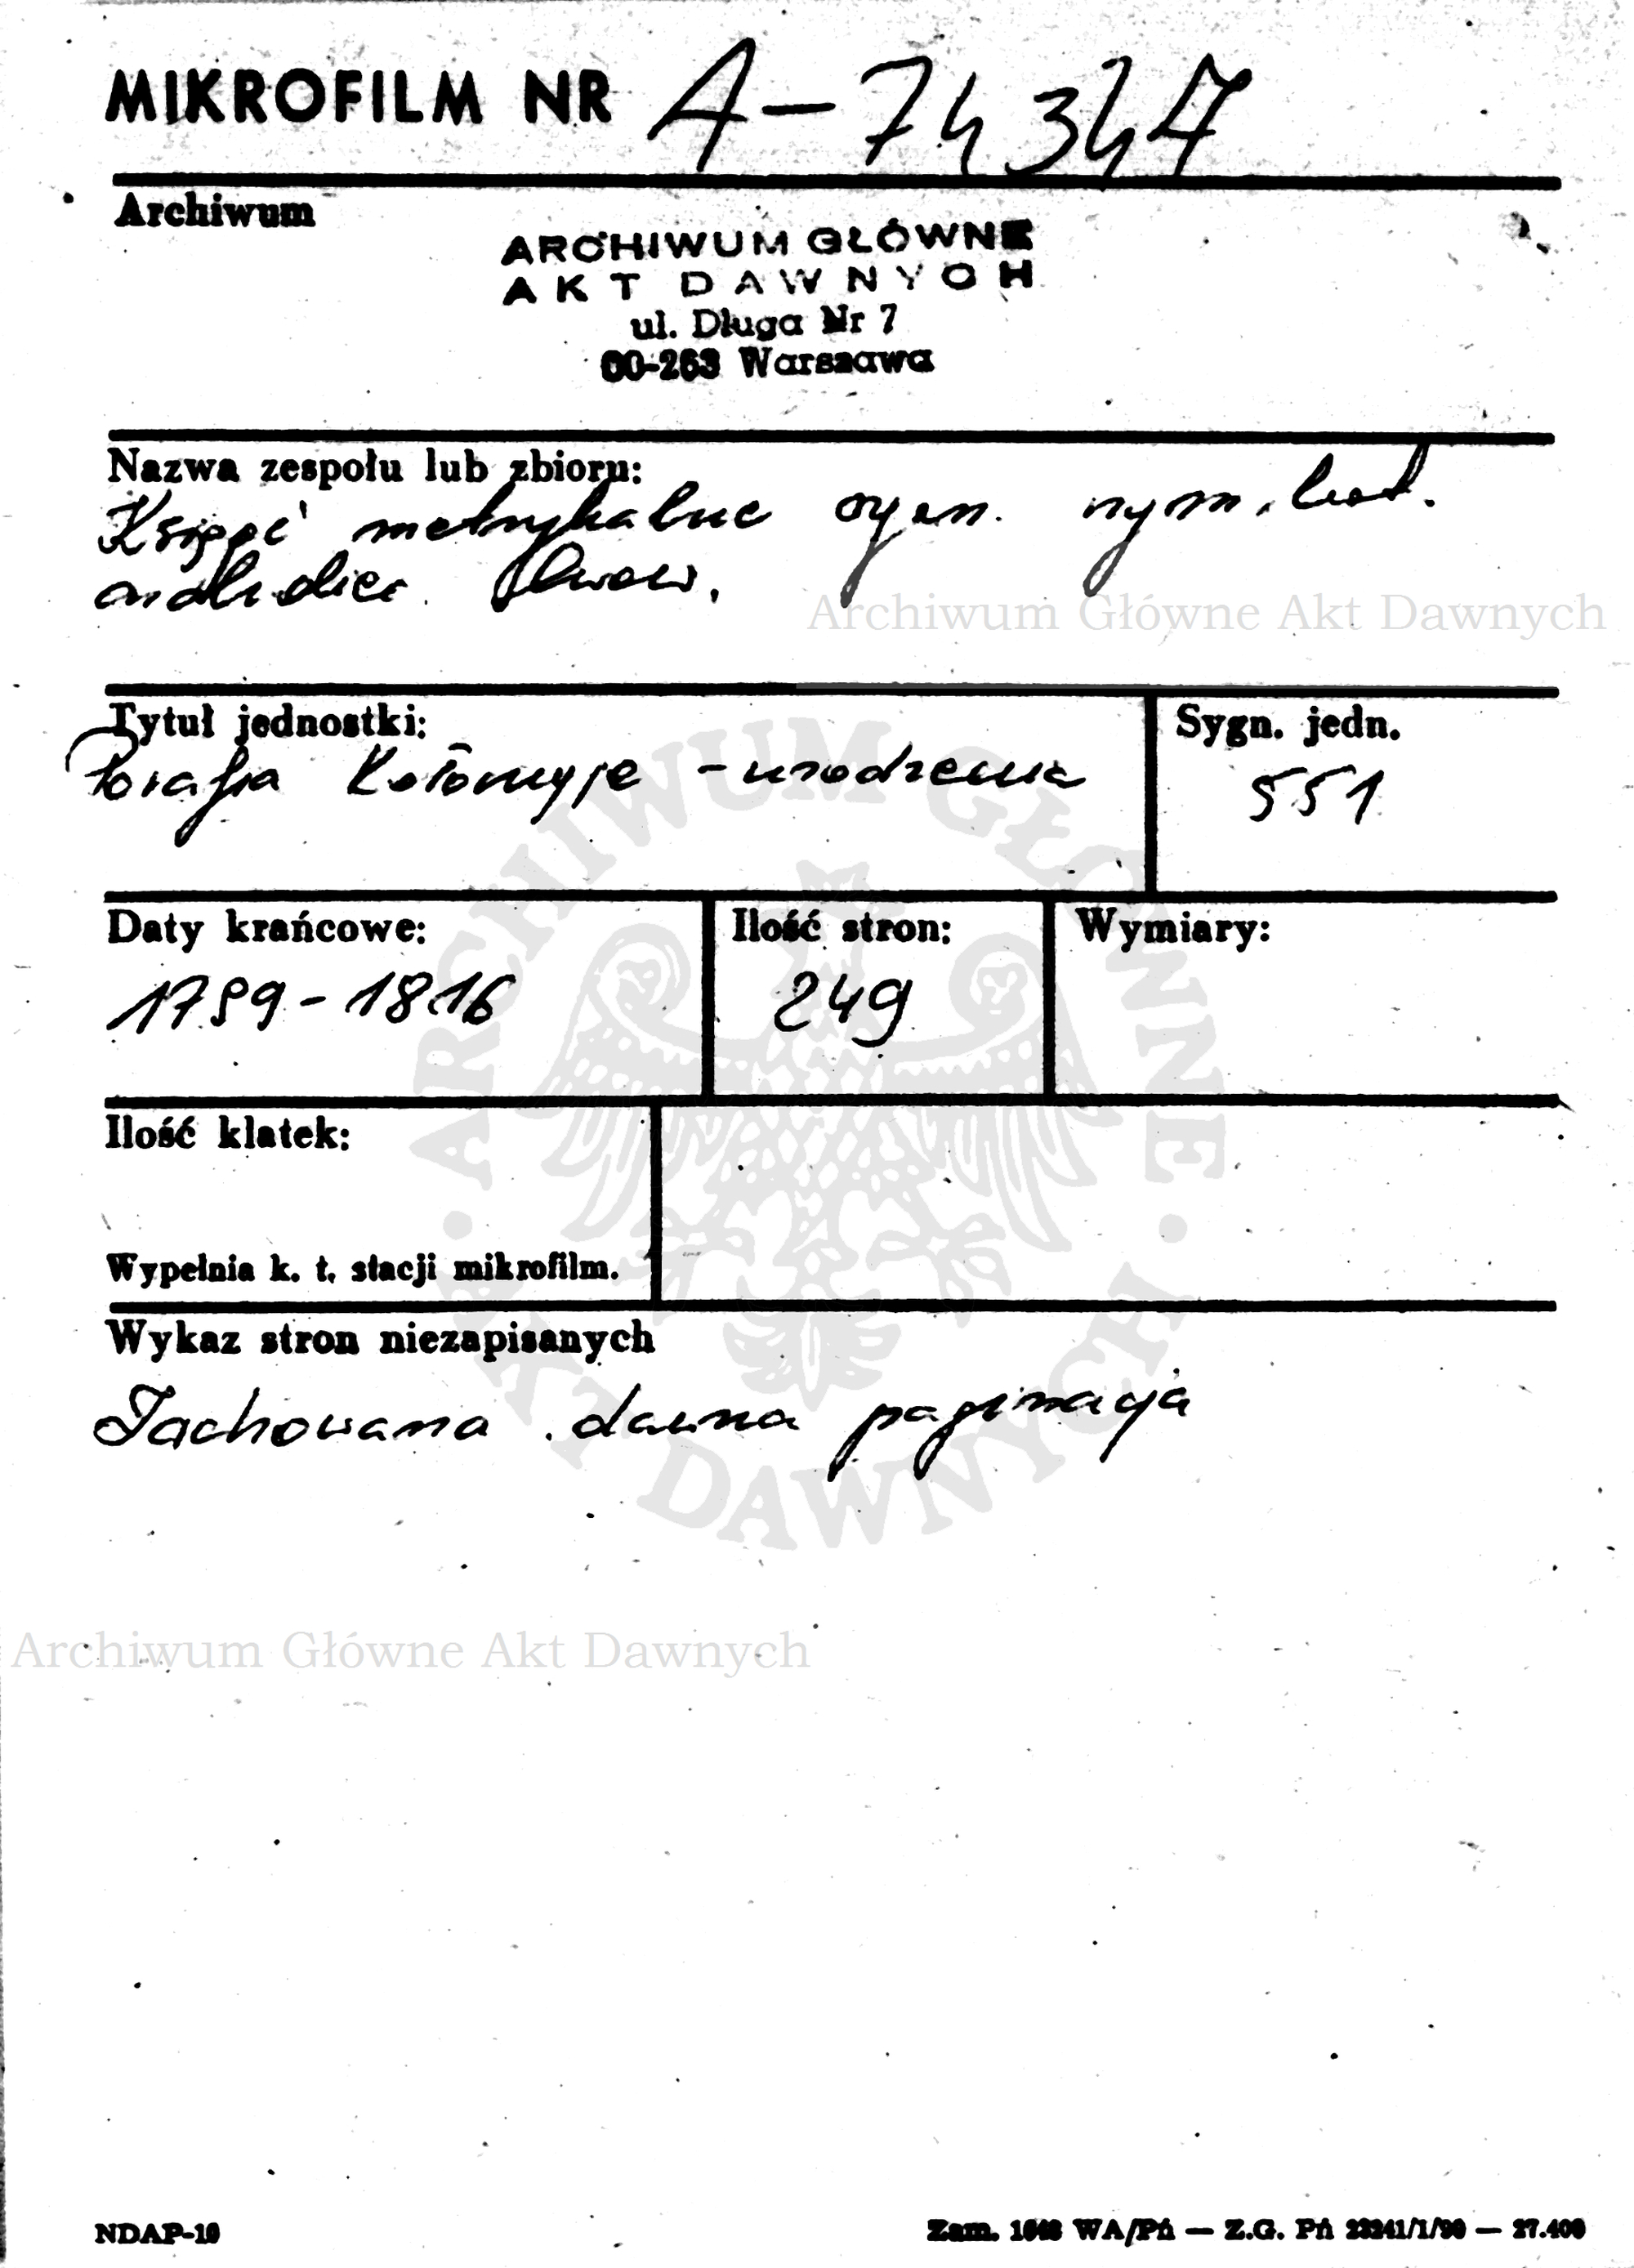 MIKROFILM NR A-74347
Archiwum
ARCHIWUM GŁÓWNE
AKT DAWNYCH
ul. Długa Nr 7
00-263 Warszawa
Nazwa zespołu lub zbioru:
Księgi metrykalne rzym.
Archiwum Główne Akt Dawnych
Tytuł jednostki:
Parafia Kołomyja - urodzenia
Sygn. jedn.
551
Daty krańcowe:
1799-1816
Ilość stron:
249
Wymiary:
Ilość klatek:
Wypełnia k. t. stacji mikrofilm.
Wykaz stron niezapisanych
Zachowana dawna paginacja
ARCHIWUM GŁÓWNE AKT DAWNYCH
Archiwum Główne Akt Dawnych
NDAP-10
Zam. WA/Pń — Z.G. Pń — 27.400